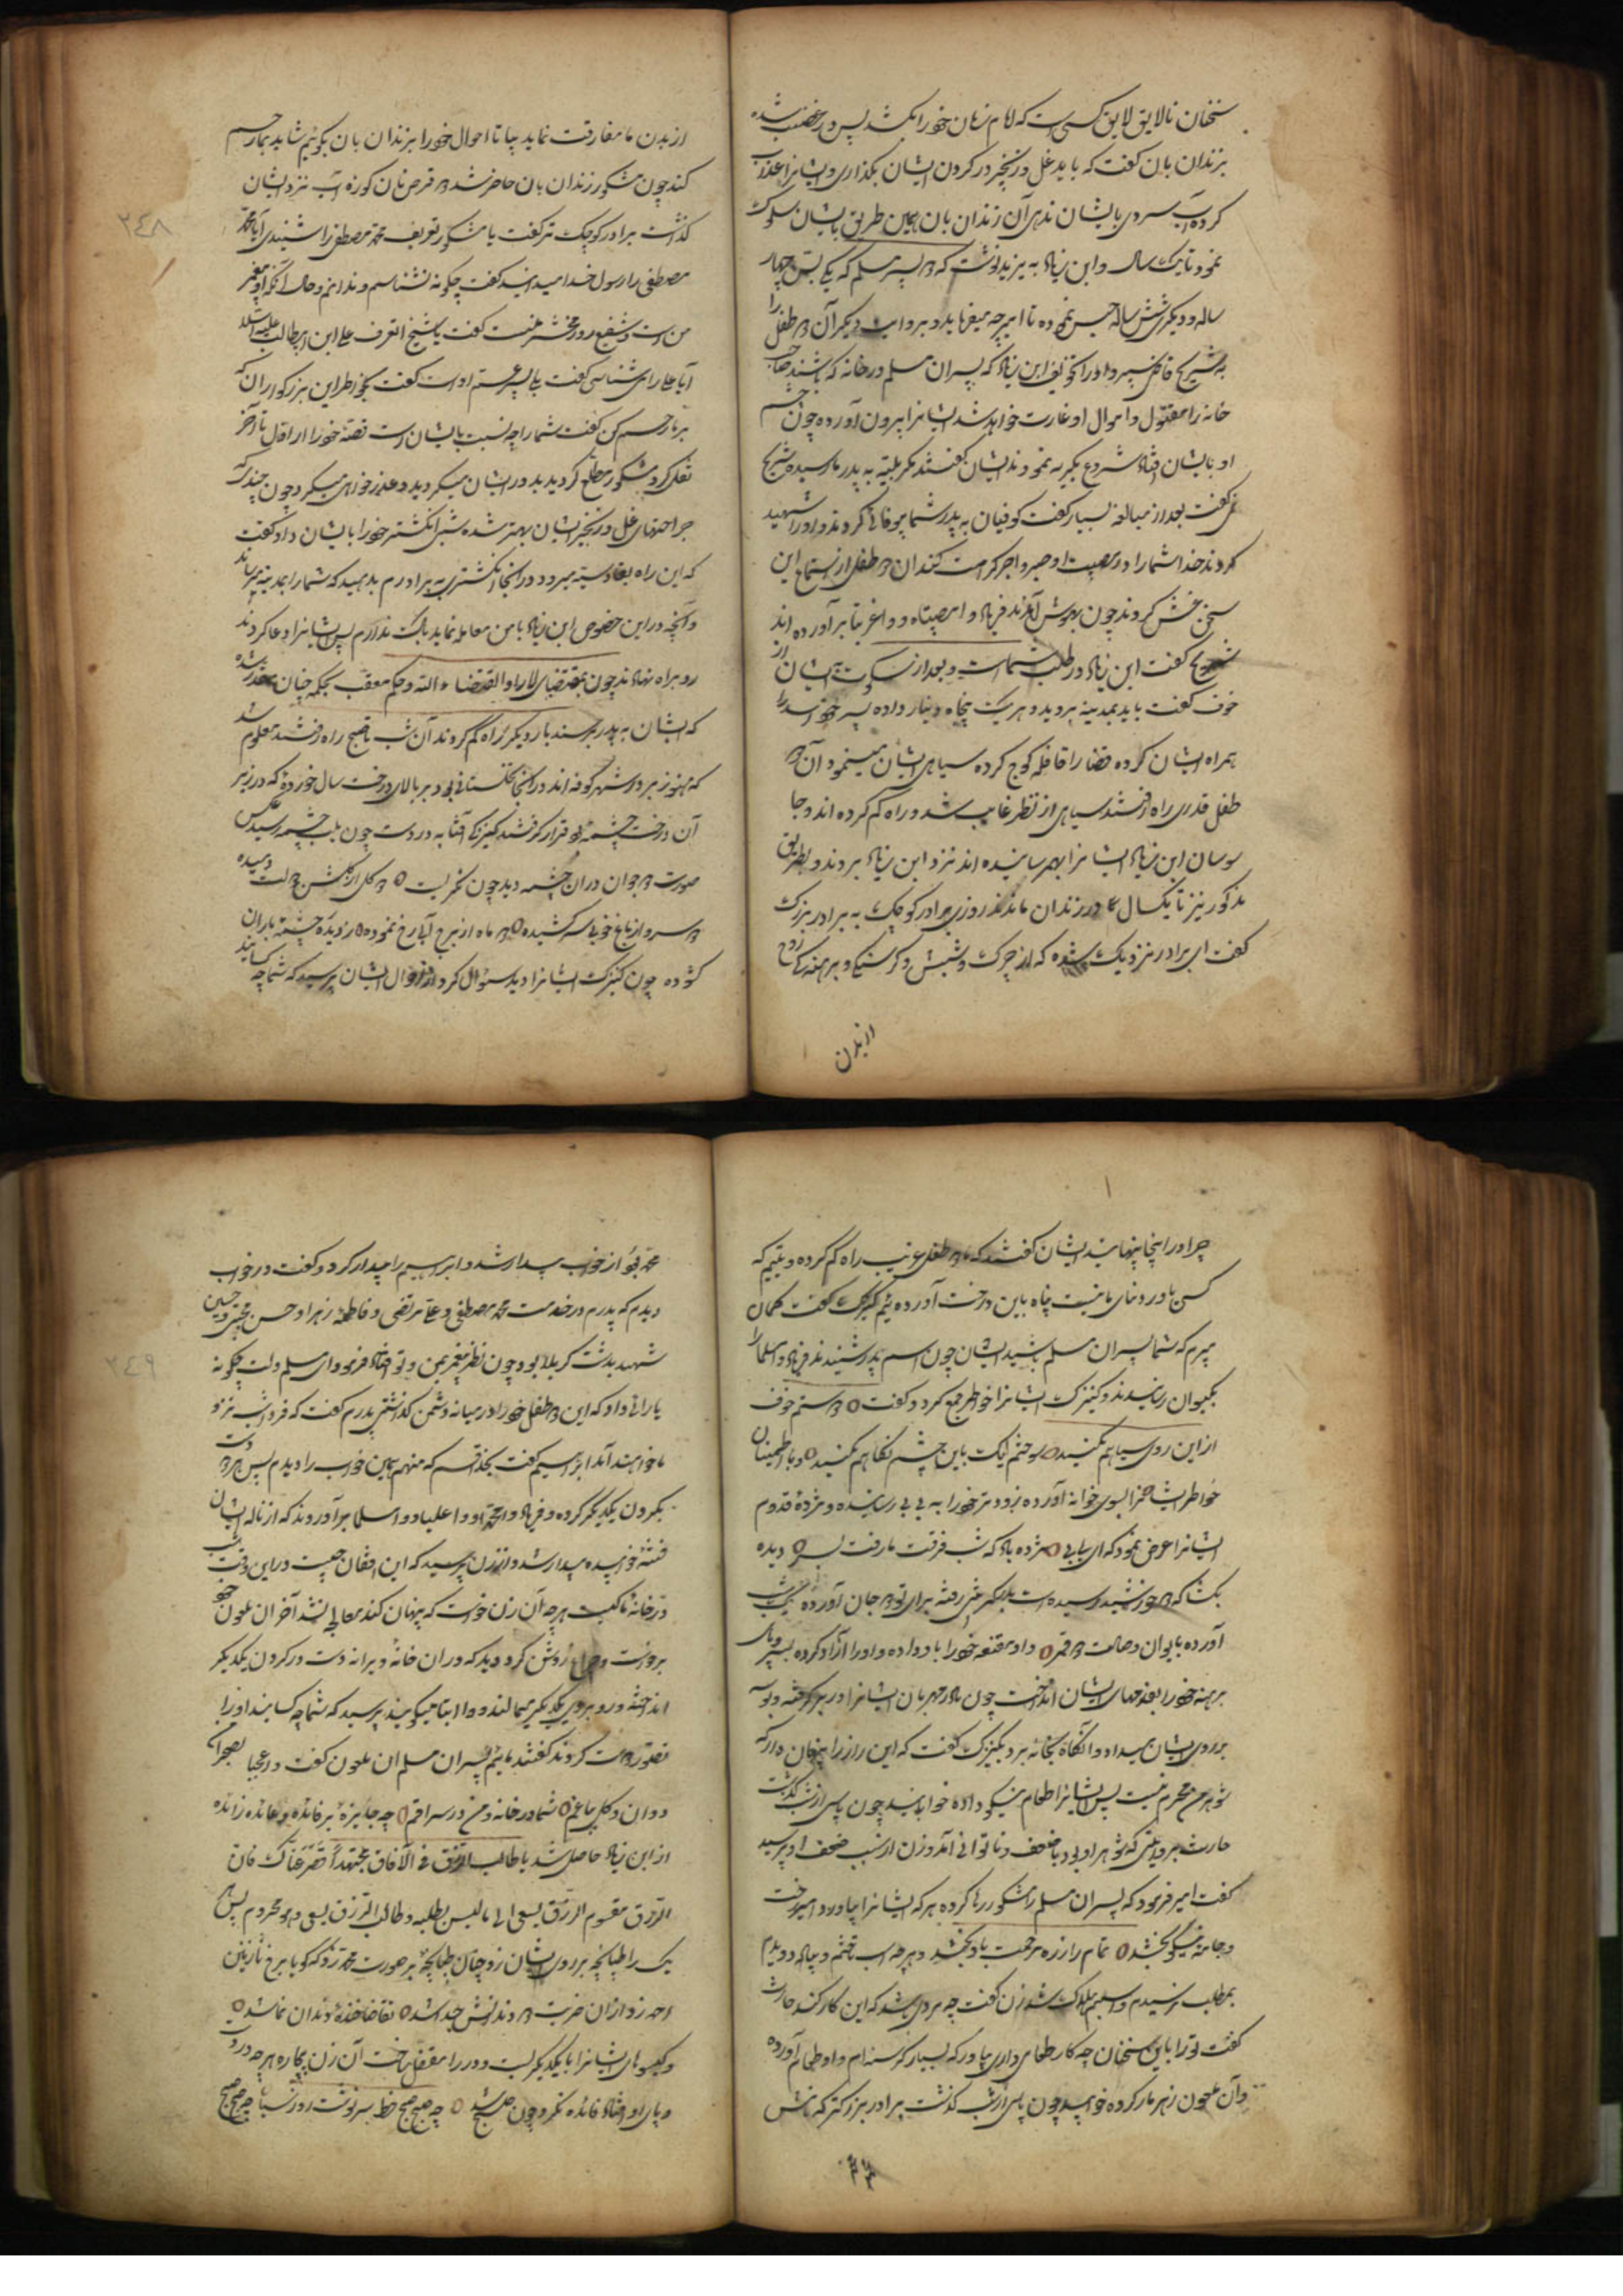 سخنان نالایق لایق کسی است که لام زبان خود را نکشد پس در غضب شده
بزندان بان کفت که باید غل و زنجیر در کردن ایشان بکذاری و ایشانرا عذاب
کرده آب سردی بایشان ندهی آن زندان بان بهمین طریق بایشان سلوک
نمود تا یک سال و ابن زیاد به یزید نوشت که دو پسر مسلم که یکی بسن چهار
ساله و دیکری شش ساله حبس نموده تا امیر چه میفرماید و بروایت دیکر آن دو طفل را
به شریح قاضی سپرد و او را تخویف ابن زیاد که پسران مسلم در خانه که باشند صاحب
خانه را مقتول و اموال او غارت خواهد شد ایشانرا بیرون آورده چون چشم
او بایشان افتاد شروع بکریه نمودند ایشان کفتند مکر بلیه به پدر ما رسیده شریح
کفت بعد از مبالغه بسیار کفت کوفیان به پدر شما بیوفائی کردند و او را شهید
کردند خدا شما را در مصیبت او صبر و اجر کرامت کند آن دو طفل از استماع این
سخن غش کردند چون بهوش آمدند فریاد وا مصیبتاه و وا غربتا بر آورده اند
شریح کفت ابن زیاد در طلب شماست و بعد از سکوت ایشان از
خوف کفت باید بمدینه بروید و هر یک پنجاه دینار داده پسر خود اسد را
همراه ایشان کرده قضا را قافله کوچ کرده سیاهی ایشان مینمود آن دو
طفل قدری راه رفتند سیاهی از نظر غایب شد و راه کم کرده اند و جا
سوسان ابن زیاد ایشانرا بهم رسانیده اند نزد ابن زیاد بردند و بطریق
مذکور نیز تا یکسال در زندان ماندند روزی برادر کوچک به برادر بزرک
کفت ای برادر نزدیک شده که از چرک و شپش و کرسنکی و برهنه کی روح
از بدن
از بدن ما مفارقت نماید بیا تا احوال خود را بزندان بان بکوئیم شاید بما رحم
کند چون مشکور زندان بان حاضر شد دو قرص نان کوزه آب نزد ایشان
کذاشت برادر کوچک تر کفت یا مشکور تعریف محمد مصطفی را شنیدی آیا محمد
مصطفی را رسول خدا میدانید کفت چکونه نشناسم و ندانم و حال آنکه او پیغمبر
من است و شفیع روز محشر منست کفت یا شیخ اتعرف علی ابن ابیطالب علیه السلام
آیا علی را می شناسی کفت بلی پسر عم او است کفت بخاطر این بزرکواران که
بر ما رحم کن کفت شما را چه نسبت بایشان است قصه خود را از اول تا آخر
نقل کرد مشکور مطلع کردید بدور ایشان میکردید و عذر خواهی میکرد چون چند که
جراحتهای غل و زنجیر ایشان بهتر شده شبی انکشتر خود را بایشان داد کفت
که این راه بقادسیه میرود در آنجا انکشتر را به برادرم بدهید که شما را بمدینه برساند
و آنچه در این خصوص ابن زیاد با من معامله نماید باک ندارم پس ایشانرا دعا کردند
رو براه نهادند چون بمقتضای لا راد لقضاء الله و لا معقب لحکمه چنان مقدر شده
که ایشان به پدر برسند بار دیکر راه کم کردند آن شب تا صبح راه رفتند معلوم شد
که هنوز بر در شهر کوفه اند در آنجا نخلستانی بود بر بالای درخت سال خورده که در زیر
آن درخت چشمه بود قرار کرفتند کنیزکی آفتابه در دست چون بلب چشمه رسید عکس
صورت دو جوان در آن چشمه دید چون نکریست دو کل از کلشن دولت دمیده
دو سرو از باغ خوبی سر کشیده دو ماه از برج آبی رخ نموده از دیده چشمه باران
کشوده چون کنیزک ایشانرا دید سئوال کرد از احوال ایشان پرسید که شما چه کسانید
٢٤٨
چرا در اینجا پنهانید ایشان کفتند که ما دو طفل غریب راه کم کرده و یتیم که
کس یاور و نمای ما نیست پناه باین درخت آورده ئیم کنیزک کفت کمان
میبرم که شما پسران مسلم باشید ایشان چون اسم پدر شنیدند فریاد وا مسلما را
بکیوان رسانیدند و کنیزک ایشانرا خواطر جمع کرد و کفت
از این روی سیاهم مکنید سوختم لیک باین چشم نکاهم مکنید و با اطمینان
خواطر ایشانرا بسوی خوانه آورده زودتر خود را به بی بی رسانیده و مژده قدوم
ایشانرا عرض نمود که ای بی بی مژده باد که شب فرقت ما رفت بسر دیده
بکشا که دو خورشید رسیده است
آورده بایوان وصالت دو قمر داد مقنعه خود را باو داده و او را آزاد کرده بسر و پای
برهنه خود را بقدمهای ایشان انداخت چون مادر مهربان ایشانرا در بر کرفته و بوسه
بر روی ایشان میداد و آنکاه بخانه برد بکنیزک کفت که این راز را پنهان دار که
شوهر من محرم نیست پس ایشانرا طعام نیکو داده خوابانید چون پاسی از شب کذشت
حارث بروایتی که شوهر او بود با ضعف و ناتوانی آمد و زن از سبب ضعف او پرسید
کفت امیر فرمود که پسران مسلم را مشکور رها کرده هر که ایشانرا بیاورد امیر رخت
و جامه نیکو بخشد تمام راز ره مرحمت باو بخشد و هر چه اسب تاختم و پیاده دویدم
بمطلب نرسیدم و اسبم هلاک شد زن کفت چه مردی باشد که این کار کند حارث
کفت تو را باین سخنان چه کار طعامی داری بیاور که بسیار کرسنه ام و او طعام آورده
و آن ملعون زهر مار کرده خوابید چون پاسی از شب کذشت برادر بزرکتر که نامش
محمد بود از خواب بیدار شد و ابراهیم را بیدار کرد و کفت در خواب
دیدم که پدرم در خدمت محمد مصطفی و علی مرتضی و فاطمه زهرا و حسن مجتبی و حسین
شهید بدشت کربلا بود چون نظر پیغمبر بمن و تو افتاد فرمود ای مسلم دلت چکونه
یارائی داد که این دو طفل خود را در میانه دشمن کذاشتی پدرم کفت که فردا شب نزد
ما خواهند آمد ابراهیم کفت بخدا قسم که من هم همین خواب را دیدم پس هر دو دست
بکردن یکدیکر کرده و فریاد وا محمداه و وا علیاه و وا مسلما بر آوردند که از ناله ایشان
فتنه خوابیده بیدار شد و از زن پرسید که این افغان چیست در این وقت شب
در خانه ما کیست هر چه آن زن خواست که پنهان کند معالجه نشد آخر آن ملعون خود
برخواست و چراغ روشن کرد دید که در آن خانه ویرانه دست در کردن یکدیکر
انداخته و رو بروی یکدیکر میمالند و وا ابتا میکویند پرسید که شما چه کسانید او را
تصور دوست کردند کفتند ما یتیم پسران مسلم آن ملعون کفت وا عجبا بصحرا
دوان و کل بباغم شما در خانه و من در سراغم چه جایزه پر فائده و عائده زائده
از ابن زیاد حاصل شد یا طالب الرزق فی الآفاق مجتهداً قصر عناک فان
الرزق مقسوم الرزق یسعی الی ما لیس یطلبه و طالب الرزق یسعی و هو محروم پس هر
یک را طپانچه بر روی ایشان زد چنان طپانچه بر صورت محمد زد که کویا برخ نازنین
احمد زد از آن ضربت دو دندانش جدا شد تقاضا خنده دندان نما شد
و کیسوهای ایشانرا با یکدیکر بست و در را مقفل ساخت آن زن بیچاره هر چه در دست
و پای او افتاد فائده نکرد چون صبح شد چه صبح صبح خط سرنوشت روز سیاه چه صبح صبح
٢٤٩